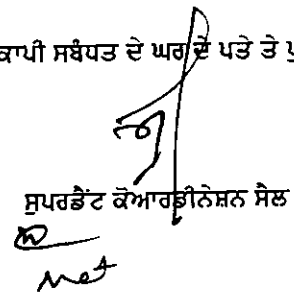 ਕਾਪੀ ਸਬੰਧਤ ਦੇ ਘਰ ਦੇ ਪਤੇ ਤੇ
ਸੁਪਰਡੈਂਟ ਕੋਆਰਡੀਨੇਸ਼ਨ ਸੈਲ